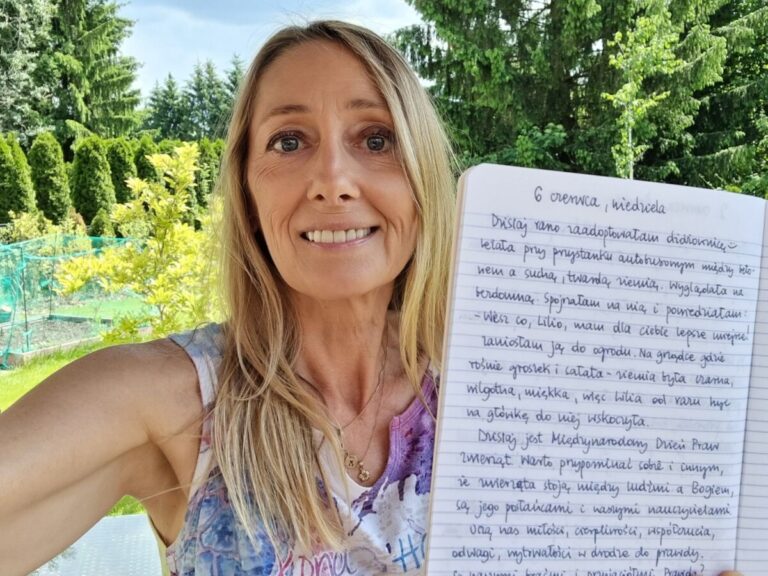 6 czerwca, niedziela
Dzisiaj rano zaadoptowałam dżdżownicę -
leżała przy przystanku autobusowym między beto-
nem a suchą, twardą ziemią. Wyglądała na
bezdomną. Spojrzałam na nią i powiedziałam:
- Wiesz co, Lilio, mam dla ciebie lepsze miejsce!
Zaniosłam ją do ogrodu. Na grządce gdzie
rośnie groszek i sałata - ziemia była czarna,
wilgotna, miękka, więc Lilia od razu
na główkę do niej wskoczyła.
Dzisiaj jest Międzynarodowy Dzień Praw
Zwierząt. Warto przypominać sobie i innym,
że zwierzęta stoją między ludźmi a Bogiem,
są jego posłańcami i naszymi nauczycielami
Uczą nas miłości, cierpliwości, współczucia,
odwagi, wytrwałości w drodze do prawdy.
Są naszymi braćmi i przyjaciółmi. Prawda?